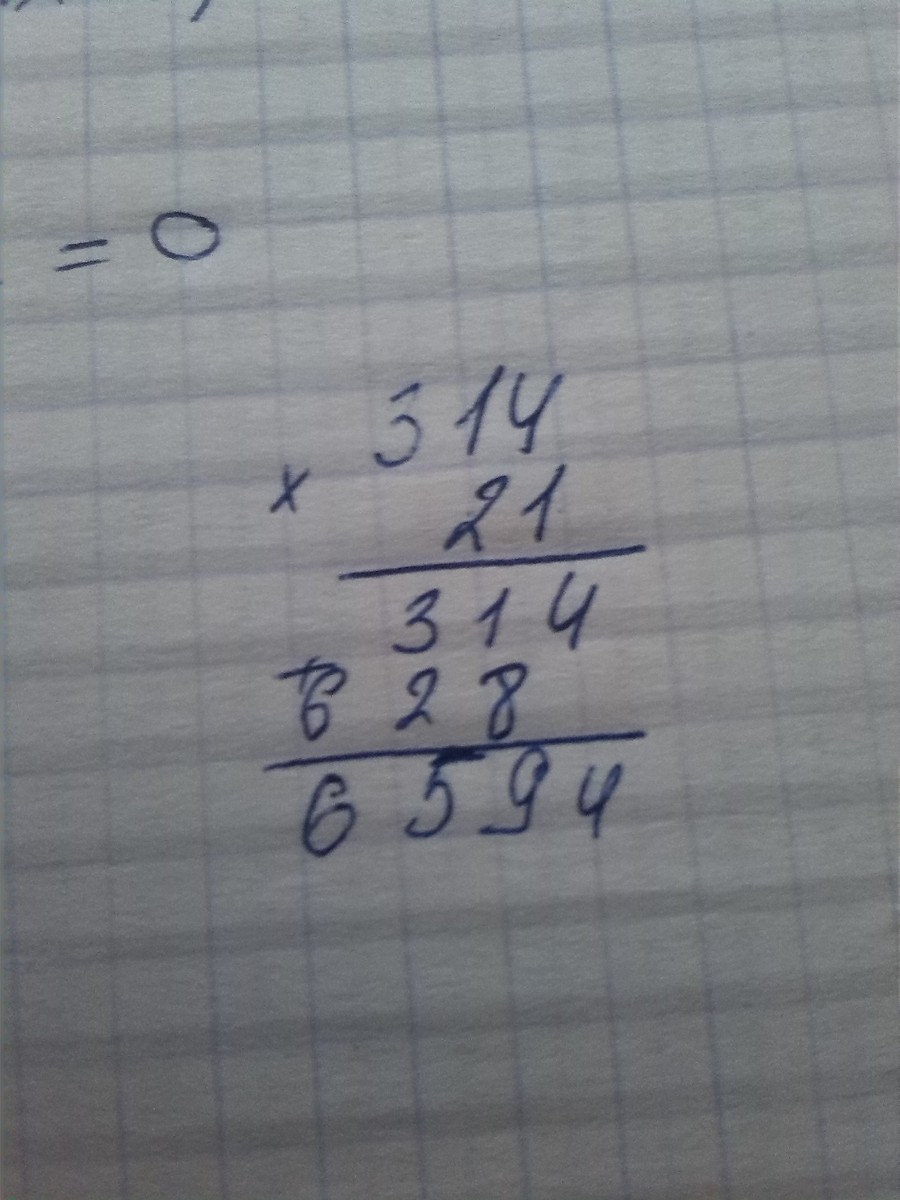 = 0
314
x
21
314
+
628
6594